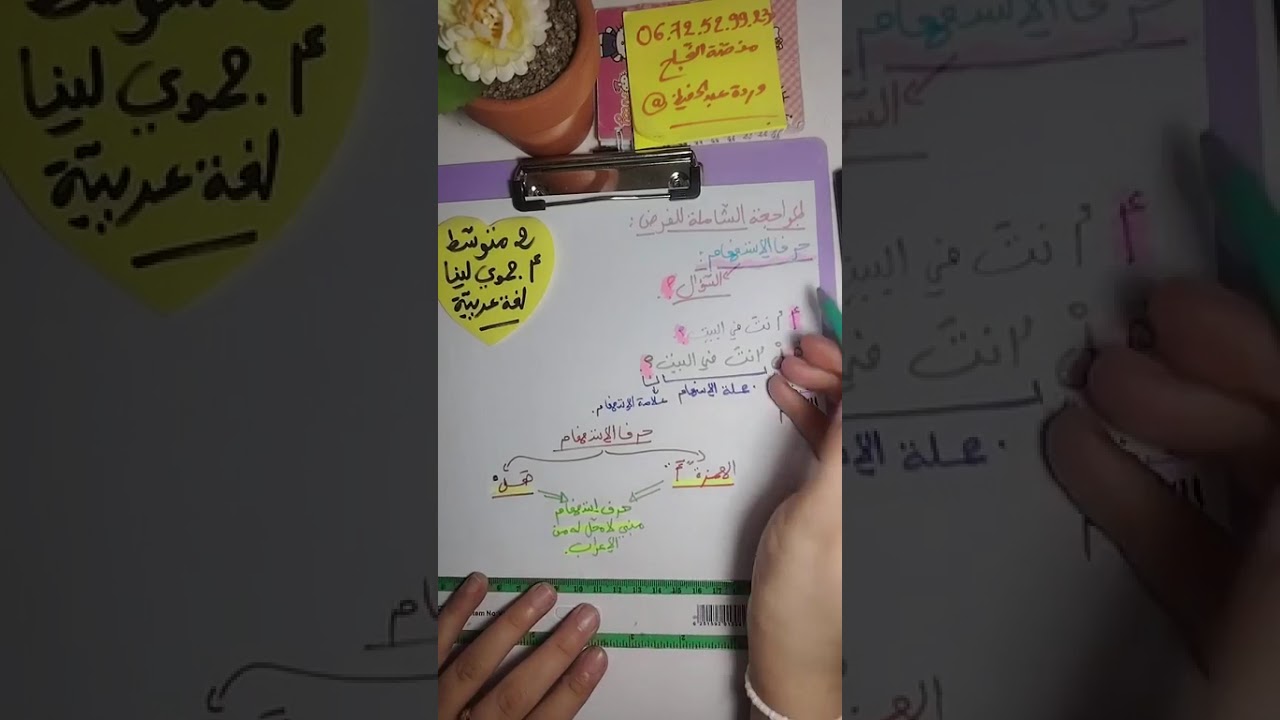 06.72.52.99.23
منصّة النّجاح
وردة عبد الحفيظ @
2 متوسّط
أ. حموي لينا
لغة عربيّة
المراجعة الشّاملة للفرض:
حرفا الإستفهام:
السّؤال؟
أ أنت في البيت؟
هل أنت في البيت؟
جملة الإستفهام
علامة الإستفهام.
حرفا الإستفهام
الهمزة "أ"
هل
حرف إستفهام
مبني لا محلّ له من
الإعراب.